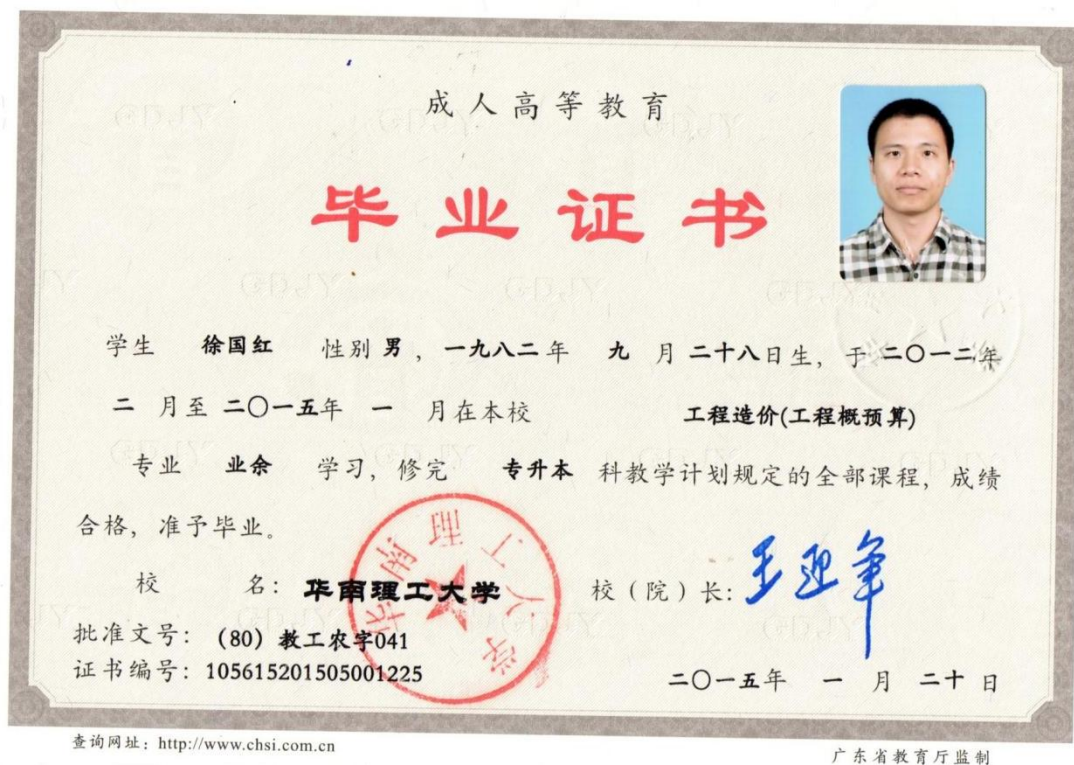 成人高等教育
毕业证书
学生 徐国红 性别 男，一九八二年 九 月 二十八日生，于 二〇一二年
二 月至 二〇一五年 一 月在本校 工程造价(工程概预算)
专业 业余 学习，修完 专升本 科教学计划规定的全部课程，成绩
合格，准予毕业。
校 名：华南理工大学 校（院）长：王迎军
批准文号：（80）教工农字041
证书编号：105615201505001225
二〇一五年 一 月 二十 日
查询网址：http://www.chsi.com.cn
广东省教育厅监制